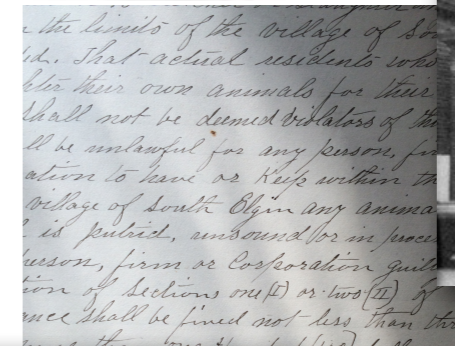 n the limits of the village of Sou
ed. That actual residents who
hter their own animals for their
shall not be deemed violators of th
ll be unlawful for any person, fir
ation to have or Keep within th
village of South Elgin any anima
l is putrid, unsound or in proces
erson, firm or Corporation guilt
ion of Sections one (I) or two (II) of
ance shall be fined not less than thr